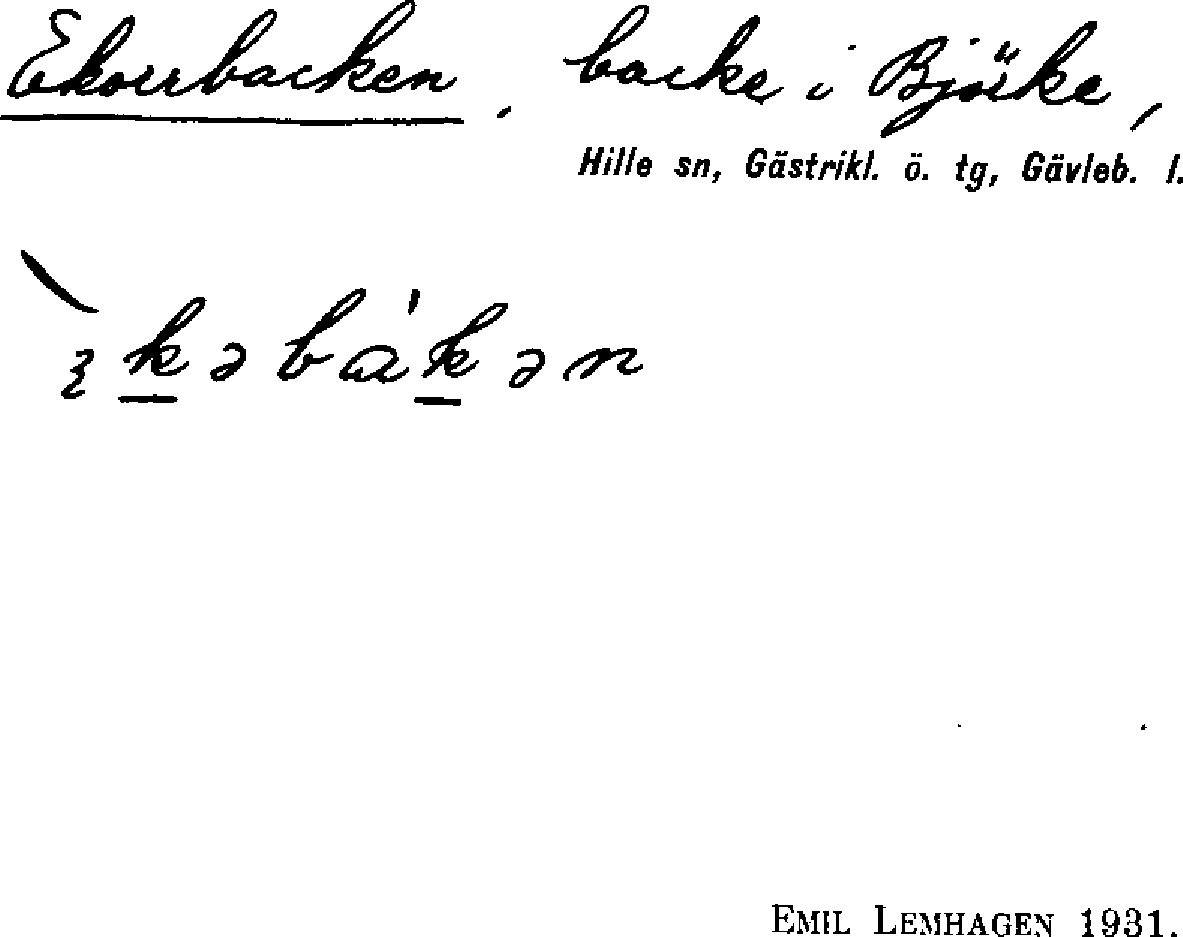 Ekorrbacken, backe i Björke,
Hille sn, Gästrikl. ö. tg, Gävleb. l.
EMIL LEMHAGEN 1931.